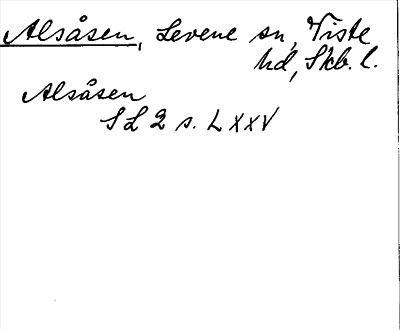 Alsåsen, Levene sn, Viste
hd, Skb. l.
Alsåsen
SL 2 s. LXXV